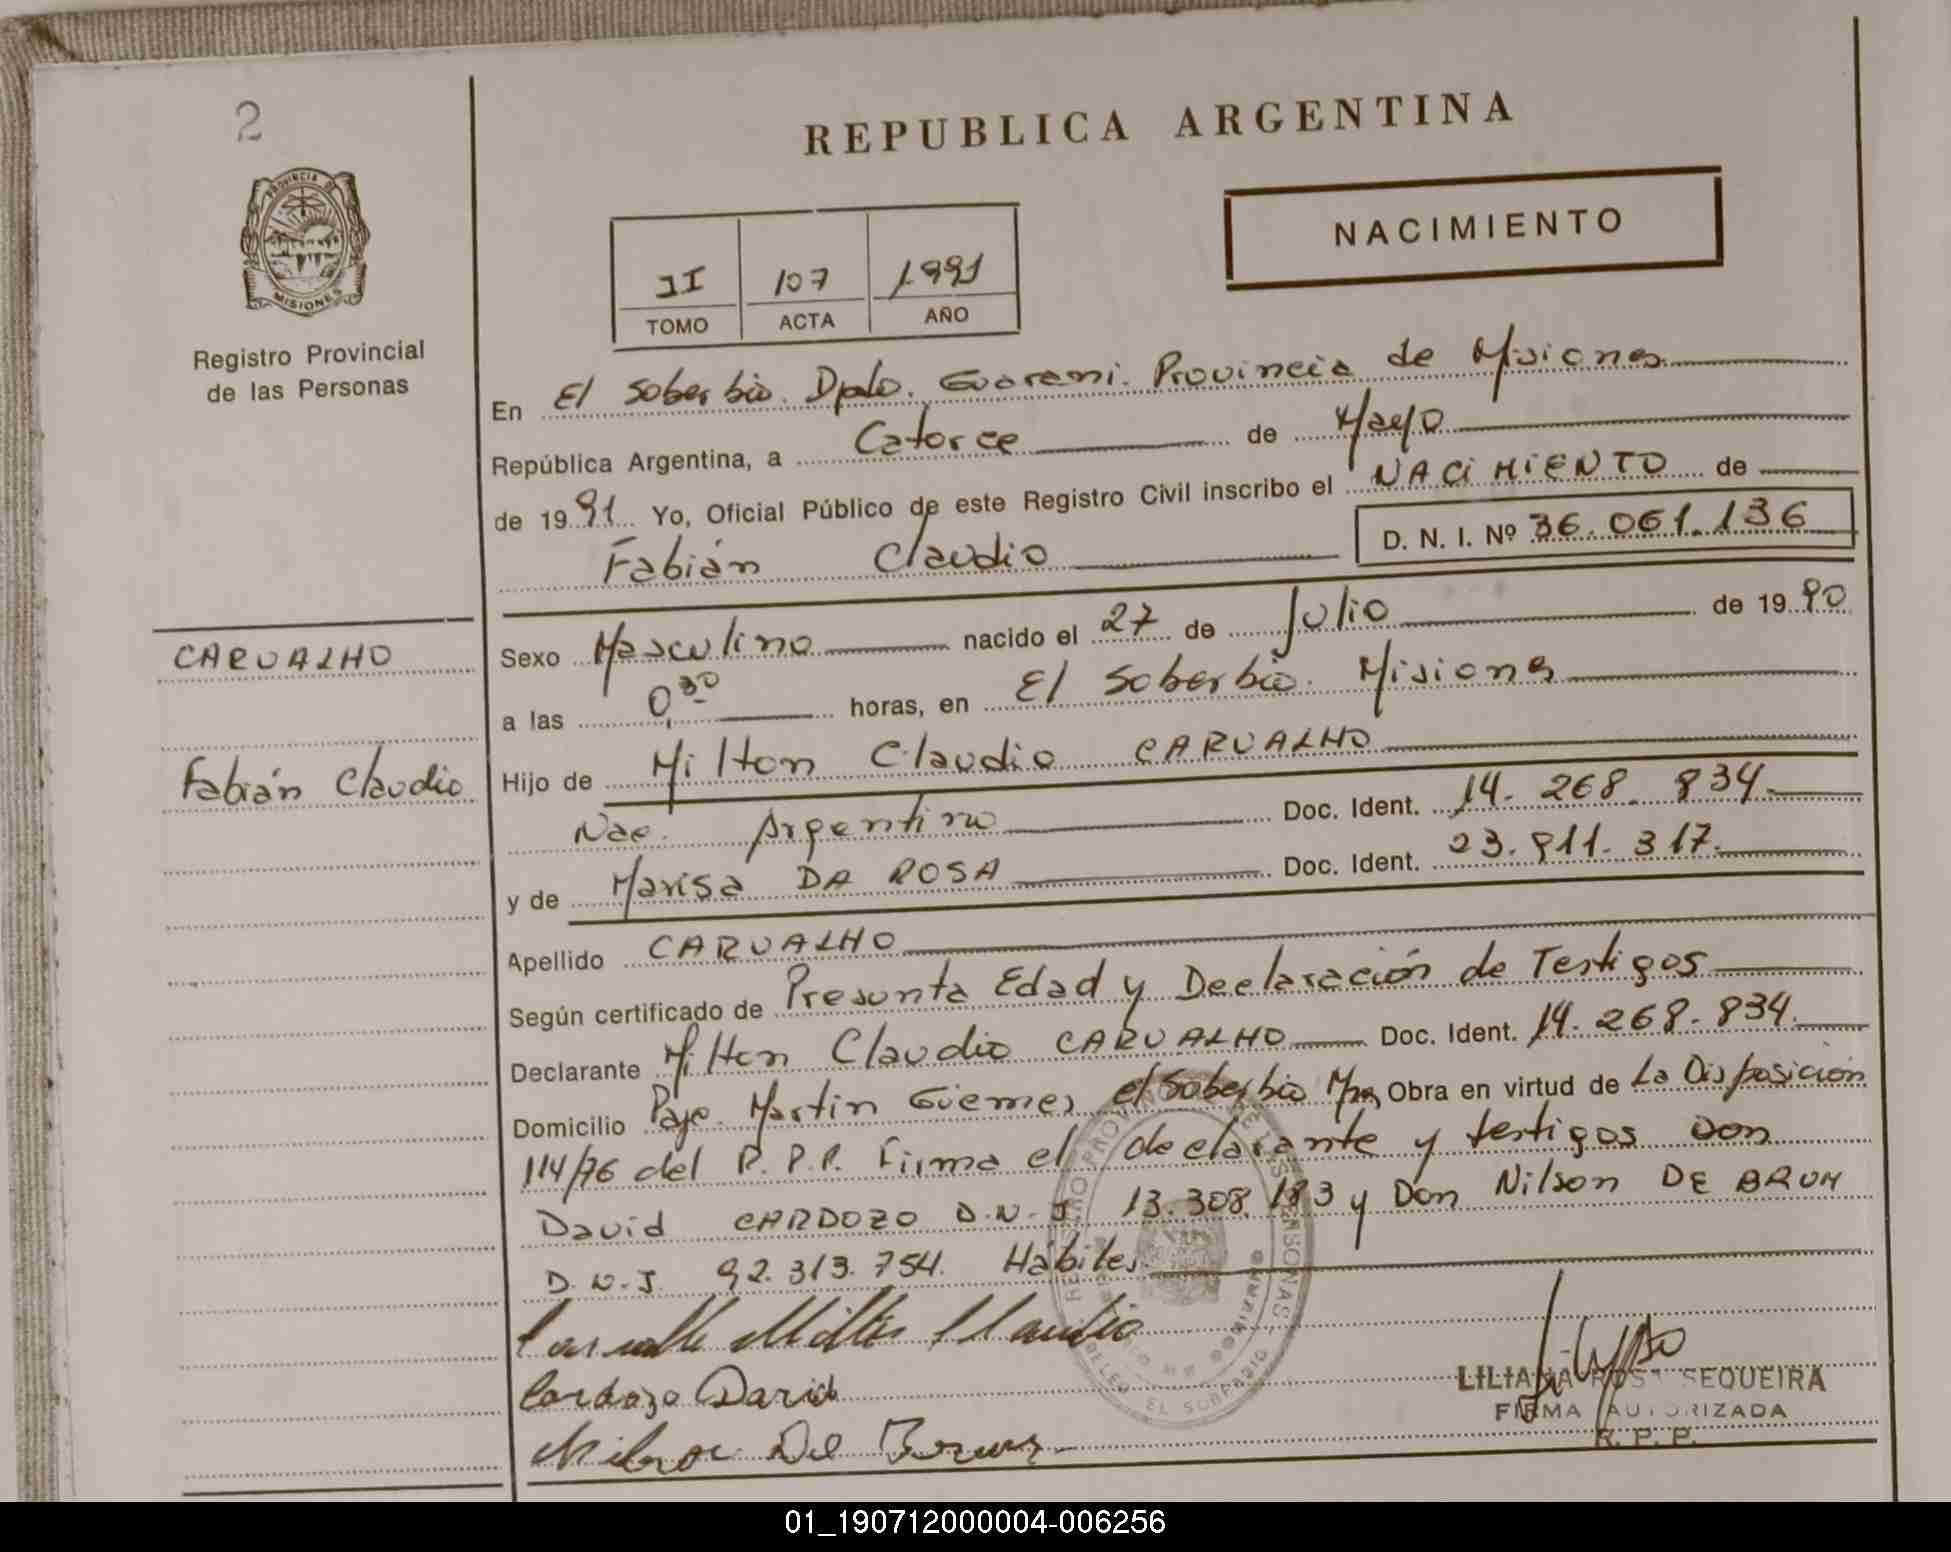 2
REPUBLICA ARGENTINA
NACIMIENTO
PROVINCIA DE
MISIONES
Registro Provincial
de las Personas
II 107 1991
TOMO ACTA AÑO
En El Soberbio. Dpto. Guarani. Provincia de Misiones
República Argentina, a Catorce de Mayo
de 1991 Yo, Oficial Público de este Registro Civil inscribo el NACIMIENTO de
Fabián Claudio D. N. I. Nº 36.061.136
CARVALHO
Fabián Claudio
Sexo Masculino nacido el 27 de Julio de 1990
a las 0,30 horas, en El Soberbio. Misiones
Hijo de Milton Claudio CARVALHO
Nac. Argentino Doc. Ident. 14. 268. 834.
y de Marisa DA ROSA Doc. Ident. 23. 911. 317.
Apellido CARVALHO
Según certificado de Presunta Edad y Declaración de Testigos
Declarante Milton Claudio CARVALHO Doc. Ident. 14. 268. 834.
Domicilio Paje. Martin Güemes el Soberbio Mnes Obra en virtud de La Disposición
114/76 del R.P.P. Firma el declarante y testigos Don
David CARDOZO D.N.I. 13.308.183 y Don Nilson DE BRUM
D.N.I. 92.313.754. Hábiles.
Carvalho Milton Claudio
Cardozo David
LILIANA ROSA SEQUEIRA
FIRMA AUTORIZADA
R. P. P.
01_190712000004-006256